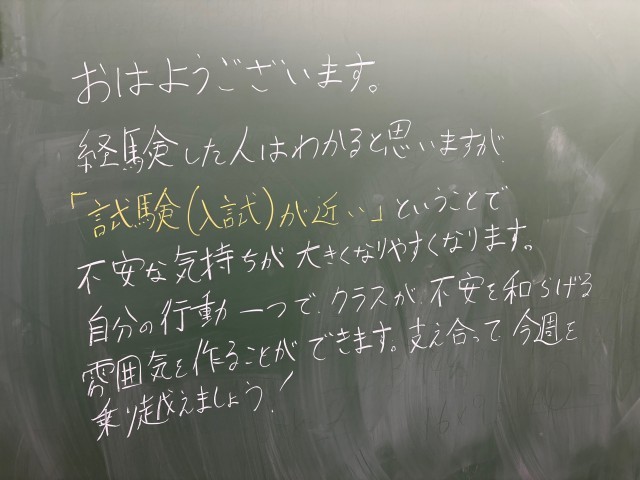 おはようございます。
経験した人はわかると思いますが
「試験(入試)が近い」ということで
不安な気持ちが大きくなりやすくなります。
自分の行動一つで、クラスが、不安を和らげる
雰囲気を作ることができます。支え合って今週を
乗り越えましょう!